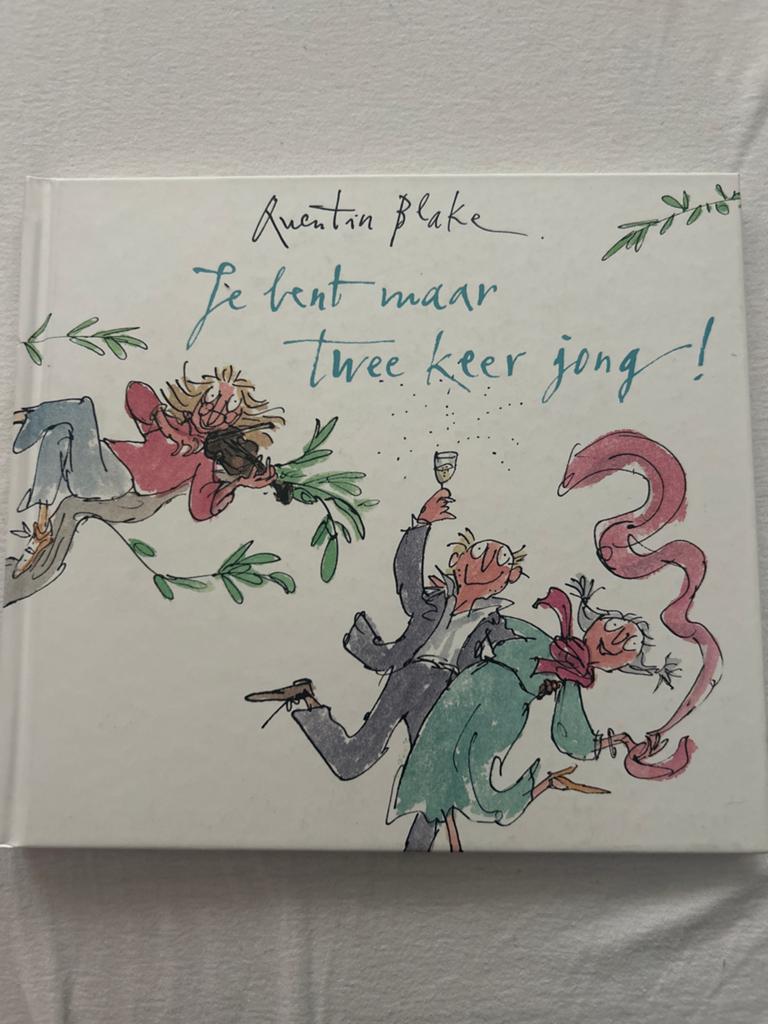 Quentin Blake
Je bent maar
twee keer jong!